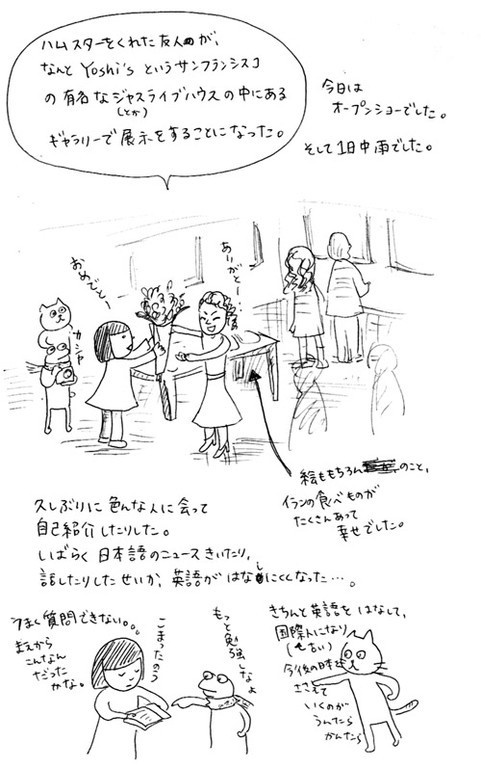 ハムスターをくれた友人が、
なんと Yoshi's というサンフランシスコ
の有名なジャズライブハウスの中にある
(とか)
ギャラリーで展示をすることになった。
今日は
オープンショーでした。
そして1日中雨でした。
おめでとー
ありがとー
カシャ
絵ももちろんのこと、
イランの食べものが
たくさんあって
幸せでした。
久しぶりに色んな人に会って
自己紹介したりした。
しばらく日本語のニュースきいたり、
話したりしたせいか、英語がはなしにくくなった…。
うまく質問できない。。。
まえから
こんなん
だった
かな。
こまったのう
もっと勉強しなよ
きちんと英語をはなして、
国際人になり
今後の日本を
ささえて
いくのが
うんたら
かんたら